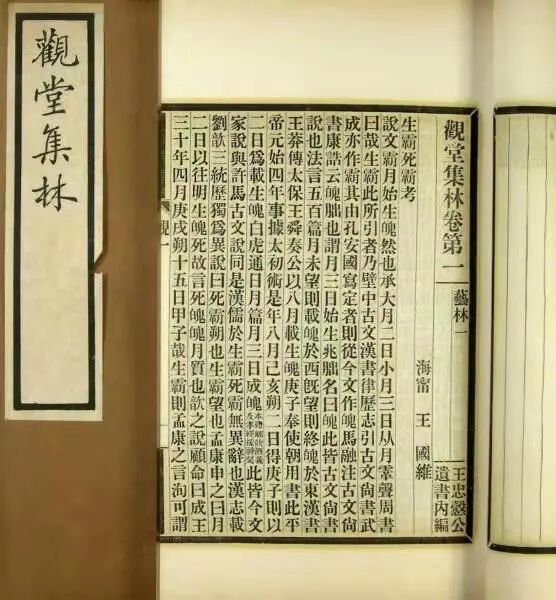 觀堂集林
觀堂集林卷第一
藝林一
王忠慤公
遺書內編
海甯 王國維
生霸死霸考
說文霸月始生魄然也承大月二日小月三日从月䨣聲周書
曰哉生霸此所引者乃壁中古文漢書律歷志引古文尙書武
成亦作霸其由孔安國寫定者則從今文作魄馬融注古文尙
書康誥云魄朏也謂月三日始生兆朏名曰魄此皆古文尙書
說也法言五百篇月未望則載魄於西旣望則終魄於東漢書
王莽傳太保王舜奏公以八月載生魄庚子奉使朝用書此平
帝元始四年事據太初術是年八月己亥朔二日得庚子則以
二日爲載生魄白虎通日月篇月三日成魄本禮鄉飲酒義及孝經援神契此皆今文
家說與許馬古文說同是漢儒於生霸死霸無異辭也漢志載
劉歆三統歷獨爲異說曰死霸朔也生霸望也孟康申之曰月
二日以往明生魄死故言死魄魄月質也歆之說顧命曰成王
三十年四月庚戌朔十五日甲子哉生霸則孟康之言洵可謂